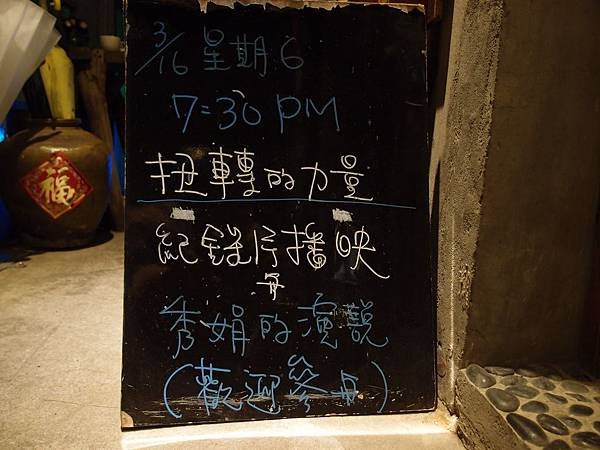 3/16 星期6
7:30 PM
扭轉的力量
紀錄片播映
秀娟的演
(歡迎參
福